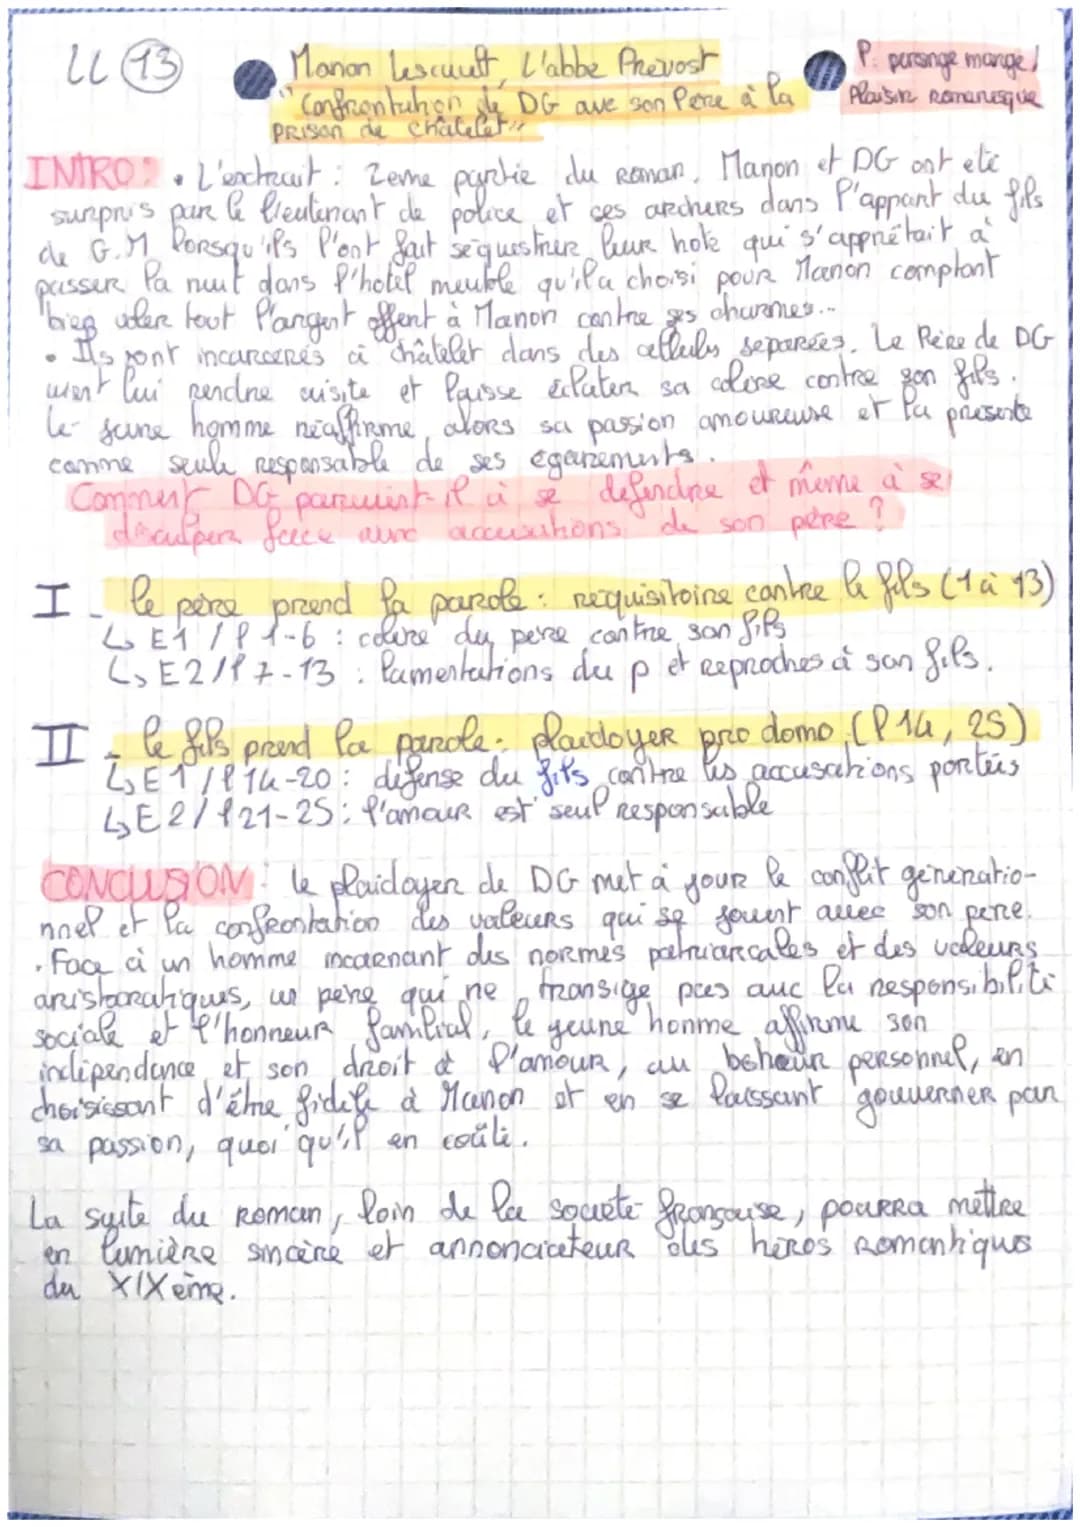 LL 13
Manon Lescault, L'abbé Prévost
"Confrontation de DG ave son Père à la
prison de châtelet"
P: persange mange/
Plaisir Romanesque
INTRO: • L'extrait : 2eme partie du roman, Manon et DG ont eté
surpris par le lieutenant de police et ces archers dans l'appart du fils
de G.M lorsqu'ils l'ont fait séquestrer leur hote qui s'apprêtait à
passer la nuit dans l'hotel meublé qu'il a choisi pour Manon comptant
bien voler tout l'argent offert à Manon contre ses charmes...
• Ils sont incarcerés à châtelet dans des cellules separées. Le Père de DG
vient lui rendre visite et laisse éclater sa colère contre son fils.
Le jeune homme réaffirme alors sa passion amoureuse et la présente
comme seule responsable de ses égarements.
Comment DG parvient-il à se défendre et même à se
disculper face aux accusations de son père ?
I - le père prend la parole : réquisitoire contre le fils (1 à 13)
↳ E1 / l 1-6 : colère du père contre son fils
↳ E2/l 7-13 : lamentations du p et reproches à son fils.
II - le fils prend la parole : plaidoyer pro domo (l 14, 25)
↳ E1/l 14-20 : défense du fils contre les accusations portées
↳ E2/l 21-25 : l'amour est seul responsable
CONCLUSION : le plaidoyer de DG met à jour le conflit génératio-
nnel et la confrontation des valeurs qui se jouent avec son père.
• Face à un homme incarnant des normes patriarcales et des valeurs
aristocratiques, un père qui ne transige pas avec la responsibilité
sociale et l'honneur familial, le jeune homme affirme son
indépendance et son droit à l'amour, au bohneur personnel, en
choisissant d'être fidèle à Manon et en se laissant gouverner par
sa passion, quoi qu'il en coûte.
La suite du roman, loin de la société française, pourra mettre
en lumière sincère et annonciateur des héros romantiques
du XIXème.